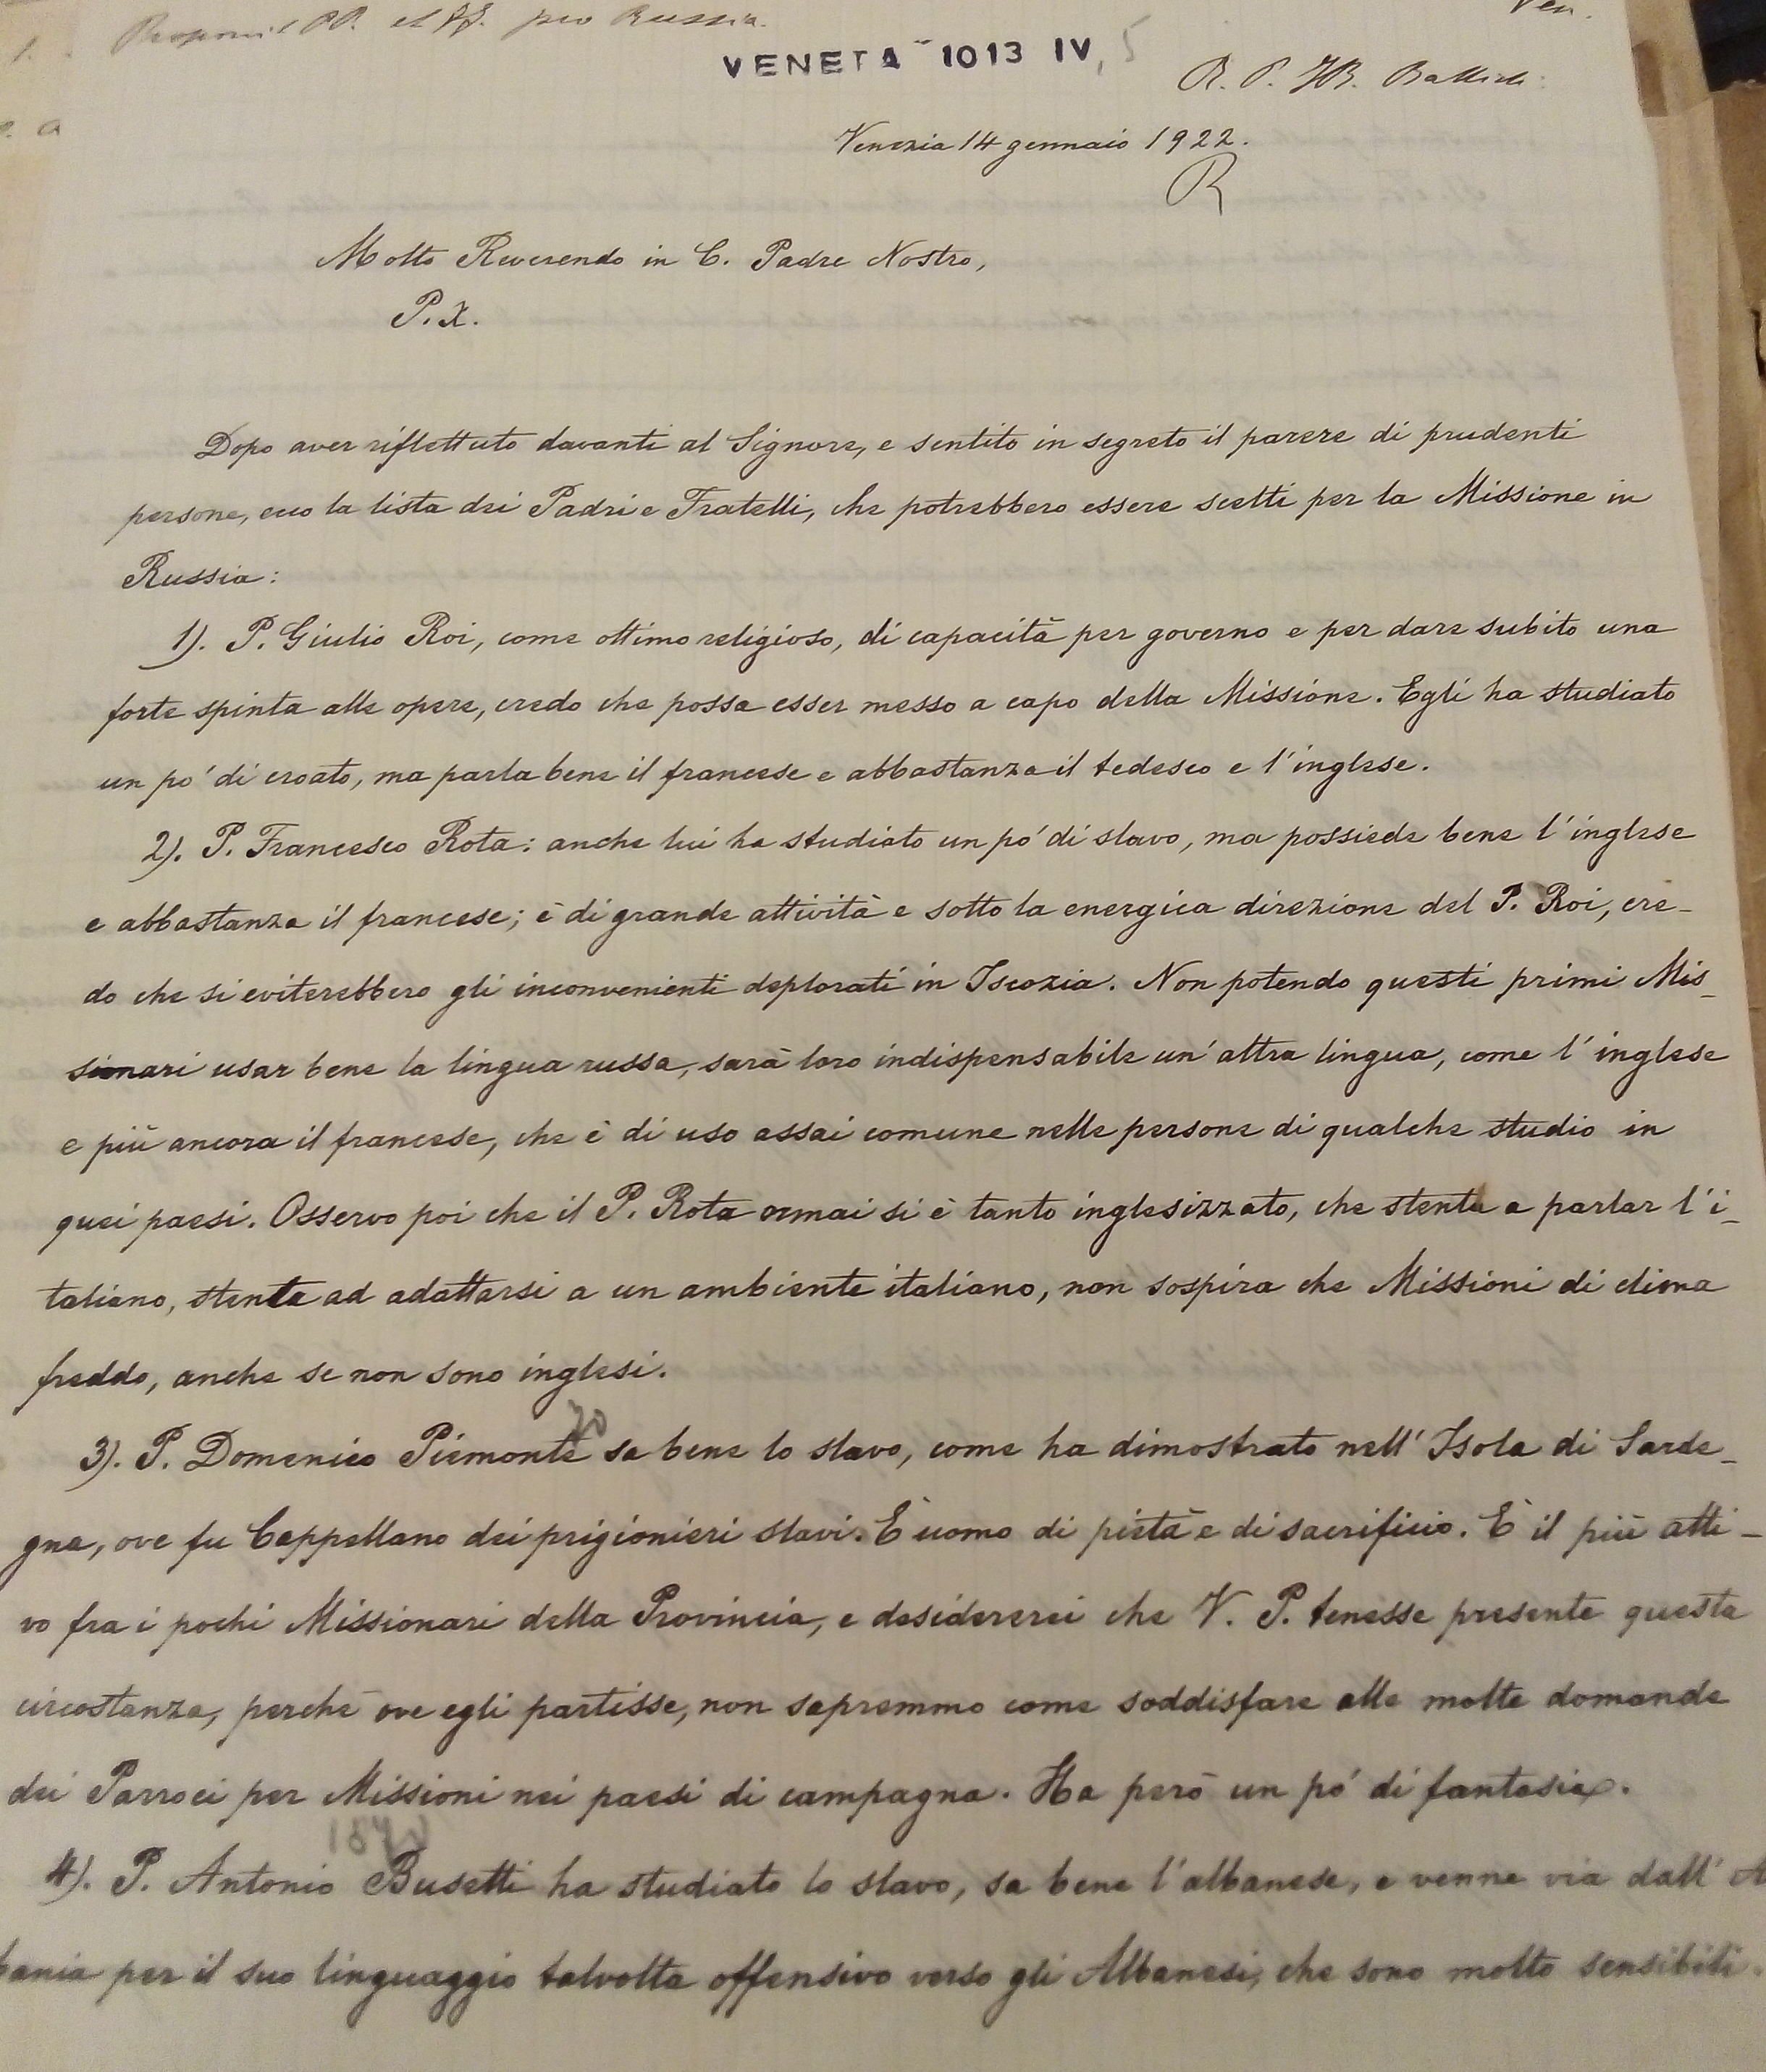 PP. et FF. pro Russia.
Ven.
VENETA 1013 IV, 5
R. P.
Venezia 14 gennaio 1922.
R
Molto Reverendo in C. Padre Nostro,
P. X.
Dopo aver riflettuto davanti al Signore, e sentito in segreto il parere di prudenti
persone, ecco la lista dei Padri e Fratelli, che potrebbero essere scelti per la Missione in
Russia:
1). P. Giulio Roi, come ottimo religioso, di capacità per governo e per dare subito una
forte spinta alle opere, credo che possa esser messo a capo della Missione. Egli ha studiato
un po' di croato, ma parla bene il francese e abbastanza il tedesco e l'inglese.
2). P. Francesco Rota: anche lui ha studiato un pó di slavo, ma possiede bene l'inglese
e abbastanza il francese; è di grande attività e sotto la energica direzione del P. Roi, cre-
do che si eviterebbero gli inconvenienti deplorati in Iscozia. Non potendo questi primi Mis-
sionari usar bene la lingua russa, sarà loro indispensabile un'altra lingua, come l'inglese
e più ancora il francese, che è di uso assai comune nelle persone di qualche studio in
quei paesi. Osservo poi che il P. Rota ormai si è tanto inglesizzato, che stenta a parlar l'i-
taliano, stenta ad adattarsi a un ambiente italiano, non sospira che Missioni di clima
freddo, anche se non sono inglesi.
70
3). P. Domenico Piemonte sa bene lo slavo, come ha dimostrato nell'Isola di Sarde-
gna, ove fu Cappellano dei prigionieri slavi. È uomo di pietà e di sacrificio. È il più atti-
vo fra i pochi Missionari della Provincia, e desidererei che V. P. tenesse presente questa
circostanza, perchè ove egli partisse, non sapremmo come soddisfare alle molte domande
dei Parroci per Missioni nei paesi di campagna. Ha però un pó di fantasia.
4). P. Antonio Busetti ha studiato lo slavo, sa bene l'albanese, e venne via dall'A
bania per il suo linguaggio talvolta offensivo verso gli Albanesi, che sono molto sensibili.